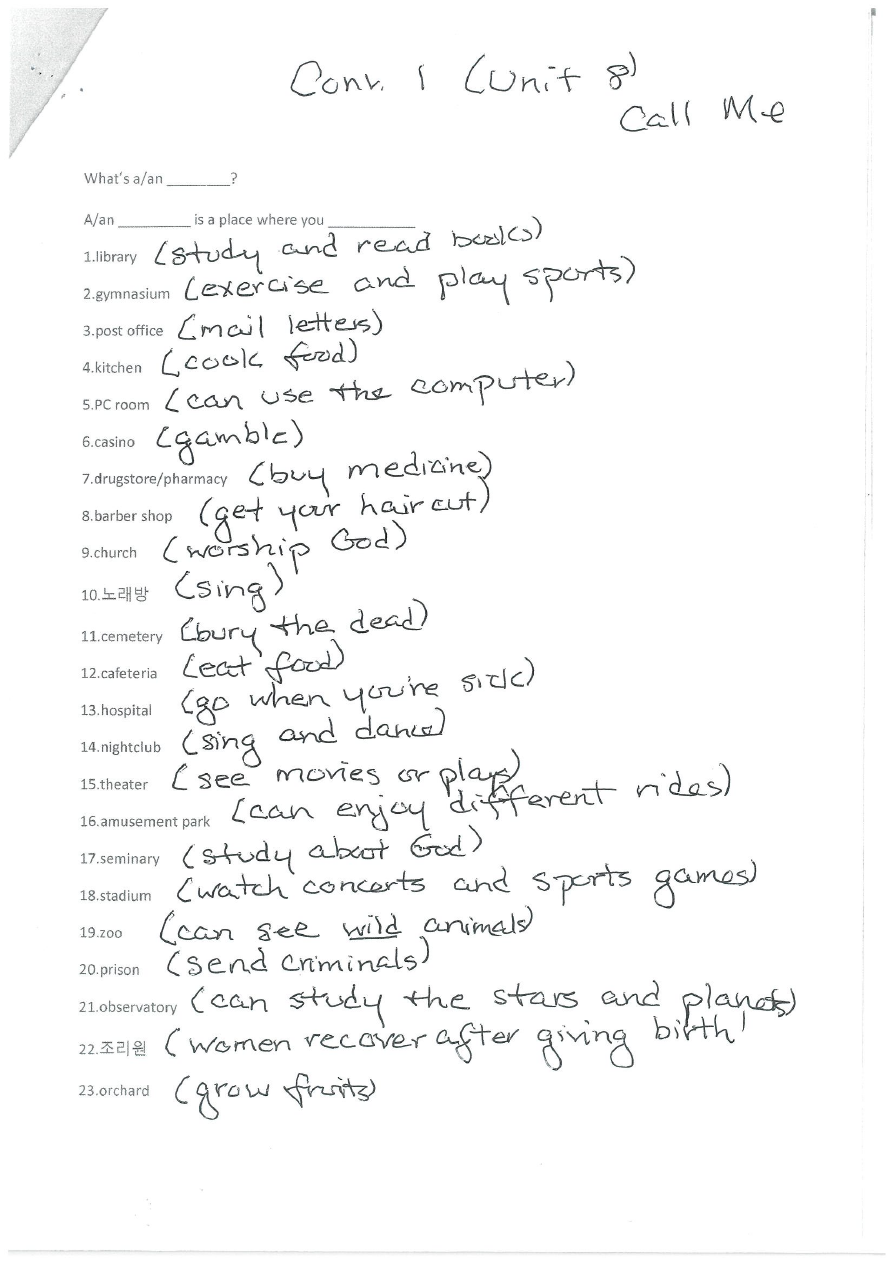 Conv. 1 (Unit 8)
Call Me
What's a/an ________?
A/an _________ is a place where you ___________
1.library (study and read books)
2.gymnasium (exercise and play sports)
3.post office (mail letters)
4.kitchen (cook food)
5.PC room (can use the computer)
6.casino (gamble)
7.drugstore/pharmacy (buy medicine)
8.barber shop (get your hair cut)
9.church (worship God)
10.노래방 (sing)
11.cemetery (bury the dead)
12.cafeteria (eat food)
13.hospital (go when you're sick)
14.nightclub (sing and dance)
15.theater (see movies or plays)
16.amusement park (can enjoy different rides)
17.seminary (study about God)
18.stadium (watch concerts and sports games)
19.zoo (can see wild animals)
20.prison (send criminals)
21.observatory (can study the stars and planets)
22.조리원 (women recover after giving birth)
23.orchard (grow fruits)